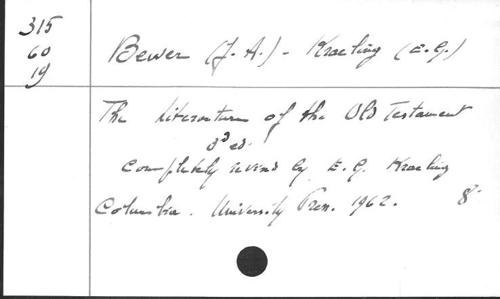 315
60
19
Bewer (J. A.) - Kraeling (E. G.)
The Literature of the Old Testament
3d ed.
completely revised by E. G. Kraeling
Columbia. University Press. 1962. 8°